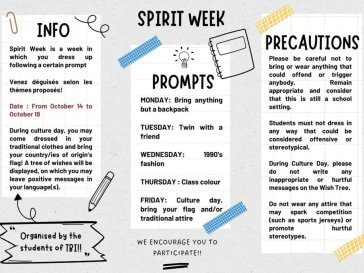 SPIRIT WEEK
INFO
Spirit Week is a week in
which you dress up
following a certain prompt
Venez déguisés selon les
thèmes proposés!
Date : From October 14 to
October 18
During culture day, you may
come dressed in your
traditional clothes and bring
your country/ies of origin's
flag! A tree of wishes will be
displayed, on which you may
leave positive messages in
your language(s).
Organised by the
students of TB1!!
PROMPTS
MONDAY: Bring anything
but a backpack
TUESDAY: Twin with a
friend
WEDNESDAY: 1990's
fashion
THURSDAY : Class colour
FRIDAY: Culture day,
bring your flag and/or
traditional attire
WE ENCOURAGE YOU TO
PARTICIPATE!!
PRECAUTIONS
Please be careful not to
bring or wear anything that
could offend or trigger
anybody. Remain
appropriate and consider
that this is still a school
setting.
Students must not dress in
any way that could be
considered offensive or
stereotypical.
During Culture Day, please
do not write any
inappropriate or hurtful
messages on the Wish Tree.
Do not wear any attire that
may spark competition
(such as sports jerseys) or
promote hurtful
stereotypes.